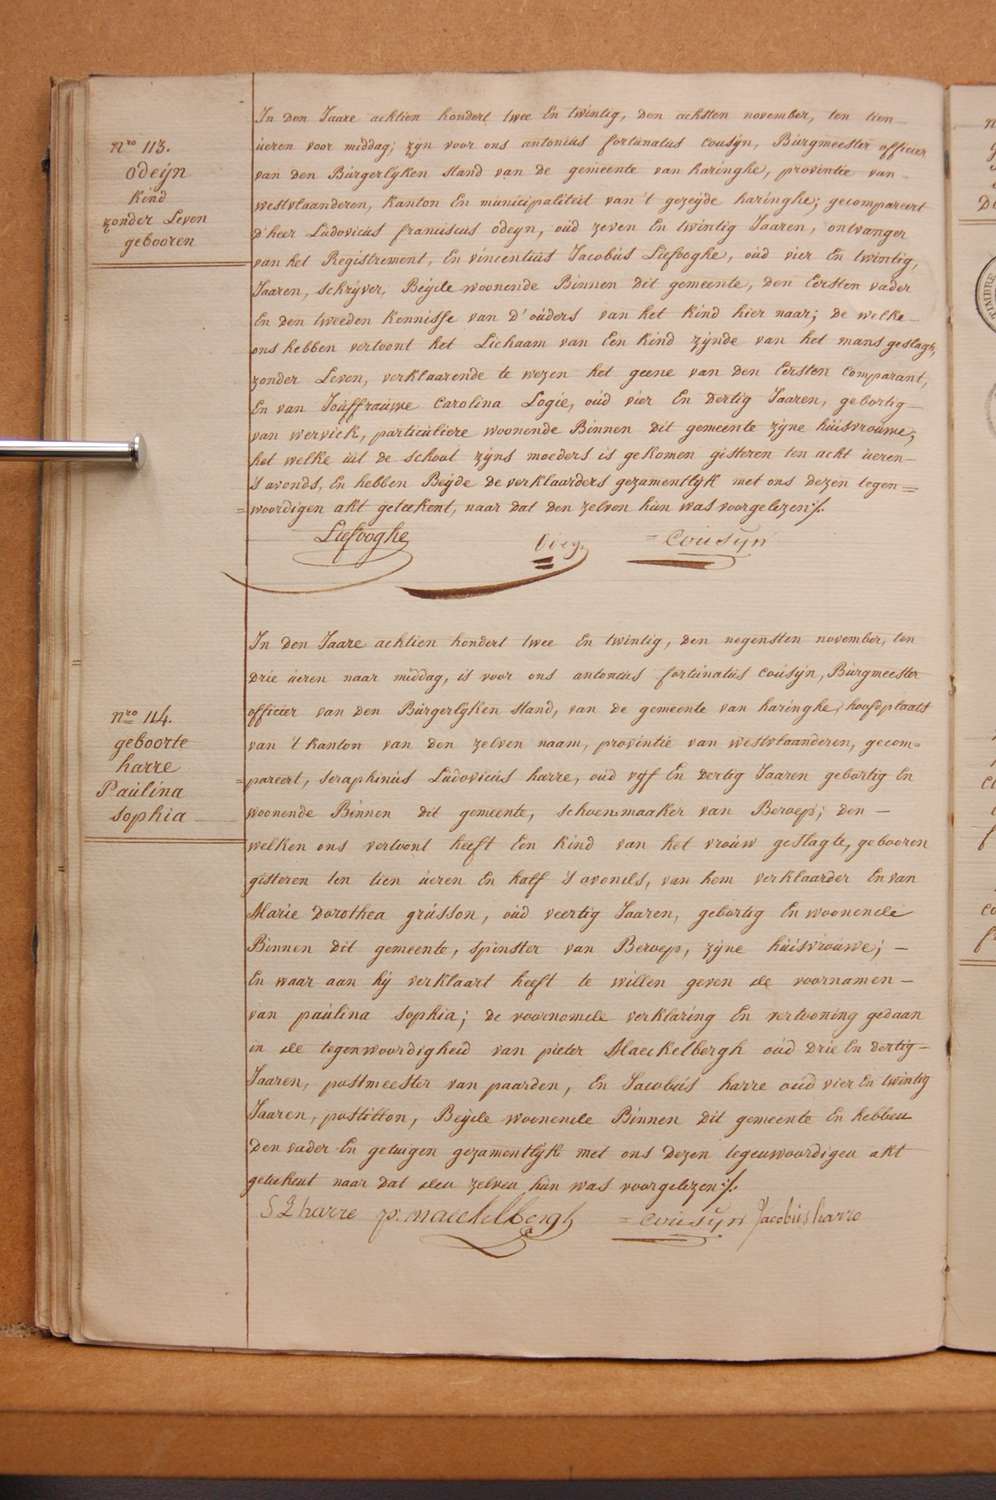 nro 113.
odeÿn
kind
zonder Leven
gebooren
In den Jaare achtien hondert twee En twintig, den achtsten november, ten tien
ueren voor middag; zÿn voor ons antonius fortunatus cousÿn, Burgmeester officier
van den Burgerlÿken stand van de gemeente van haringhe, provintie van
westvlaanderen, kanton En municipaliteit van 't gezeijde haringhe; gecompareert
d'heer Ludovicus franciscus odeÿn, oud zeven En twintig Jaaren, ontvanger
van het Registrement, En vincentius Jacobus Liefooghe, oud vier En twintig,
Jaaren, schrÿver, Beÿde woonende Binnen dit gemeente, den Eersten vader
En den tweeden kennisse van d'ouders van het kind hier naar; de welke
ons hebben vertoont het Lichaam van Een kind zÿnde van het mans geslagt,
zonder Leven, verklaarende te wezen het geene van den Eersten Comparant,
En van Jouffrauwe Carolina Logie, oud vier En dertig Jaaren, gebortig
van wervick, particuliere woonende Binnen dit gemeente zÿne huisvrouwe;
het welke uit de schoot zÿns moeders is gekomen gisteren ten acht ueren
's avonds, En hebben Beÿde de verklaarders gezamentlÿk met ons dezen tegen=
=woordigen akt geteekent, naar dat den zelven hun was voorgelezen ./.
Liefooghe
= Cousÿn
nro 114.
geboorte
harre
Paulina
sophia
In den Jaare achtien hondert twee En twintig, den negensten november, ten
drie ueren naar middag, is voor ons antonius fortunatus cousÿn, Burgmeester
officier van den Burgerlÿken stand, van de gemeente van haringhe, hoofdplaats
van 't kanton van den zelven naam, provintie van westvlaanderen, gecom=
=pareert, seraphinus Ludovicus harre, oud vÿf En dertig Jaaren gebortig En
woonende Binnen dit gemeente, schoenmaaker van Beroep; den
welken ons vertoont heeft Een kind van het vrouw geslagte, gebooren
gisteren ten tien ueren En half 's avonds, van hem verklaarder En van
Marie Dorothea grusson, oud veertig Jaaren, gebortig En woonende
Binnen dit gemeente, spinster van Beroep, zÿne huisvrouwe;
En waar aan hÿ verklaart heeft te willen geven de voornamen
van paulina sophia; de voornomde verklaring En vertooning gedaan
in de tegenwoordigheid van pieter Maeckelbergh oud drie En dertig
Jaaren, postmeester van paarden, En Jacobus harre oud vier En twintig
Jaaren, postillon, Beÿde woonende Binnen dit gemeente En hebben
den vader En getuigen gezamentlÿk met ons dezen tegenwoordigen akt
geteekent naar dat den zelven hun was voorgelezen ./.
S L harre p. maeckelbergh = cousÿn Jacobus harre